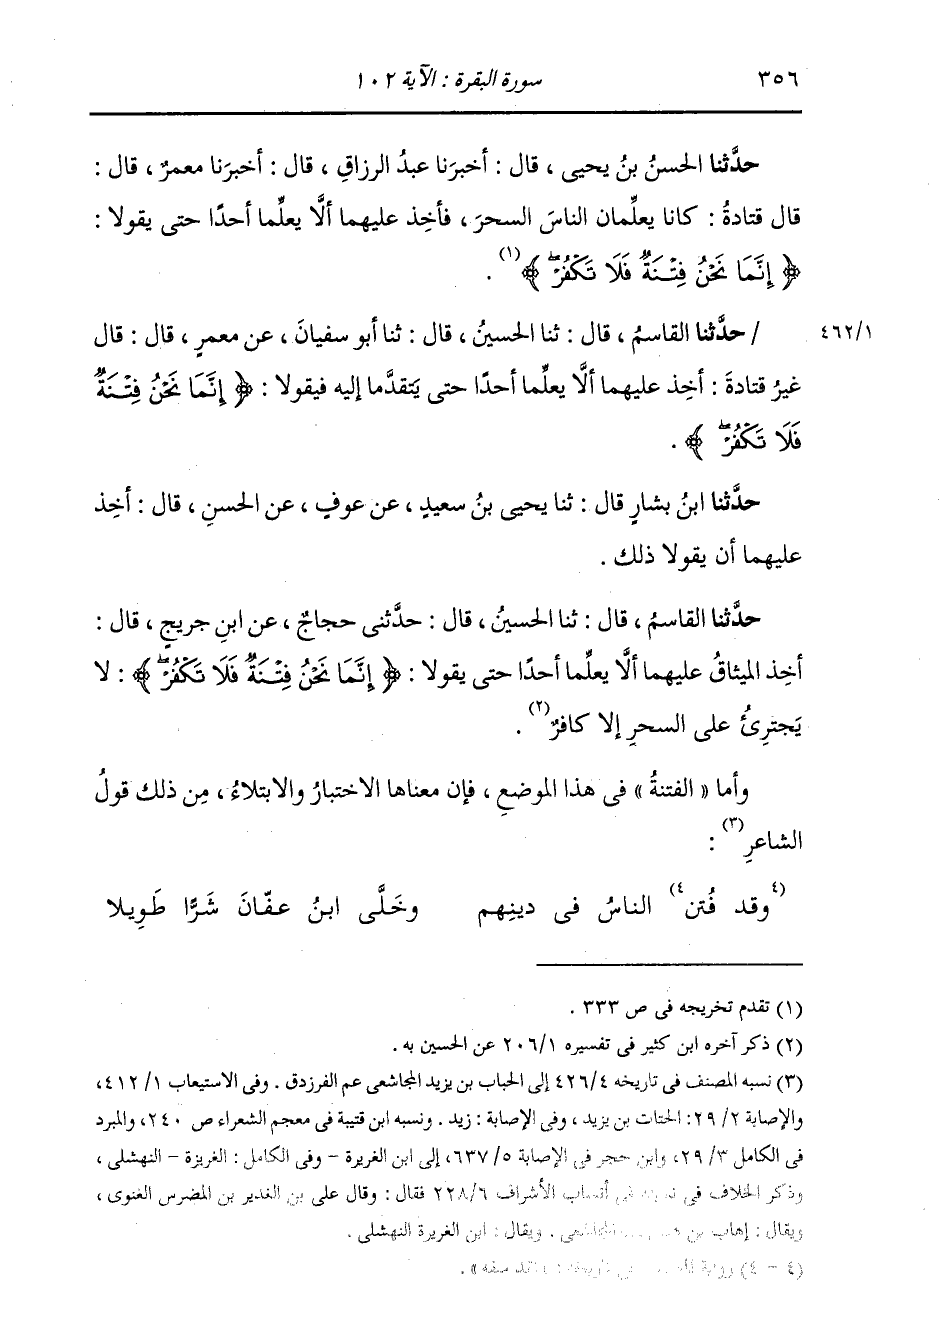 ٣٥٦ سورة البقرة : الآية ١٠٢
حدَّثنا الحسنُ بنُ يحيى ، قال : أخبرَنا عبدُ الرزاقِ ، قال : أخبرَنا معمرٌ ، قال :
قال قتادةُ : كانا يعلِّمان الناسَ السحرَ ، فأُخِذ عليهما ألَّا يعلِّما أحدًا حتى يقولا :
﴿ إِنَّمَا نَحْنُ فِتْنَةٌ فَلَا تَكْفُرْ ﴾(١) .
٤٦٢/١ / حدَّثنا القاسمُ ، قال : ثنا الحسينُ ، قال : ثنا أبو سفيانَ ، عن معمرٍ ، قال : قال
غيرُ قتادةَ : أُخِذ عليهما ألَّا يعلِّما أحدًا حتى يَتقدَّما إليه فيقولا : ﴿ إِنَّمَا نَحْنُ فِتْنَةٌ
فَلَا تَكْفُرْ ﴾ .
حدَّثنا ابنُ بشارٍ قال : ثنا يحيى بنُ سعيدٍ ، عن عوفٍ ، عن الحسنِ ، قال : أُخِذ
عليهما أن يقولا ذلك .
حدَّثنا القاسمُ ، قال : ثنا الحسينُ ، قال : حدَّثنى حجاجٌ ، عن ابنِ جريجٍ ، قال :
أُخِذ الميثاقُ عليهما ألَّا يعلِّما أحدًا حتى يقولا : ﴿ إِنَّمَا نَحْنُ فِتْنَةٌ فَلَا تَكْفُرْ ﴾ : لا
يَجترِئُ على السحرِ إلا كافرٌ(٢) .
وأما « الفتنةُ » فى هذا الموضعِ ، فإن معناها الاختبارُ والابتلاءُ ، مِن ذلك قولُ
الشاعرِ(٣) :
(٤)وقد فُتن(٤) الناسُ فى دينِهم وخَلَّى ابنُ عفّانَ شَرًّا طَوِيلا
(١) تقدم تخريجه فى ص ٣٣٣ .
(٢) ذكر آخره ابن كثير فى تفسيره ٢٠٦/١ عن الحسين به .
(٣) نسبه المصنف فى تاريخه ٤٢٦/٤ إلى الحباب بن يزيد المجاشعى عم الفرزدق . وفى الاستيعاب ٤١٢/١ ،
والإصابة ٢٩/٢ : الحتات بن يزيد ، وفى الإصابة : زيد . ونسبه ابن قتيبة فى معجم الشعراء ص ٢٤٠ ، والمبرد
فى الكامل ٢٩/٣ ، وابن حجر فى الإصابة ٦٣٧/٥ ، إلى ابن الغريرة - وفى الكامل : الغريزة - النهشلى ،
وذكر الخلاف فى نسبته فى أنساب الأشراف ٢٢٨/٦ فقال : وقال على بن الغدير بن المضرس الغنوى ،
ويقال : إهاب بن المجاشعى . ويقال : ابن الغريرة النهشلى .
(٤ - ٤) رواية فى تاريخه : سفه » .